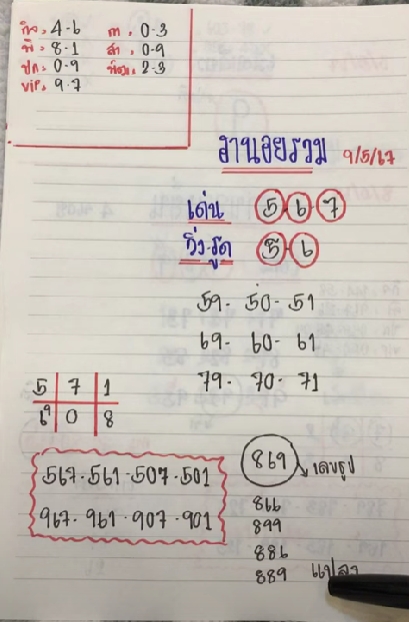 กิจ. 4-6 ก. 0-3
พิ. 8-1 สา. 0-9
ปก. 0-9 พิเศษ. 2-3
vip. 9-7
ฮานอยรวม 9/5/67
เด่น 5. 6. 7
วิ่ง-รูด 5. 6
59- 50- 51
69- 60- 61
79- 70- 71
5 7 1
6 9 0 8
567-561-507-501
967-961-907-901
869 เลขธูป
866
899
886
889 แปลง